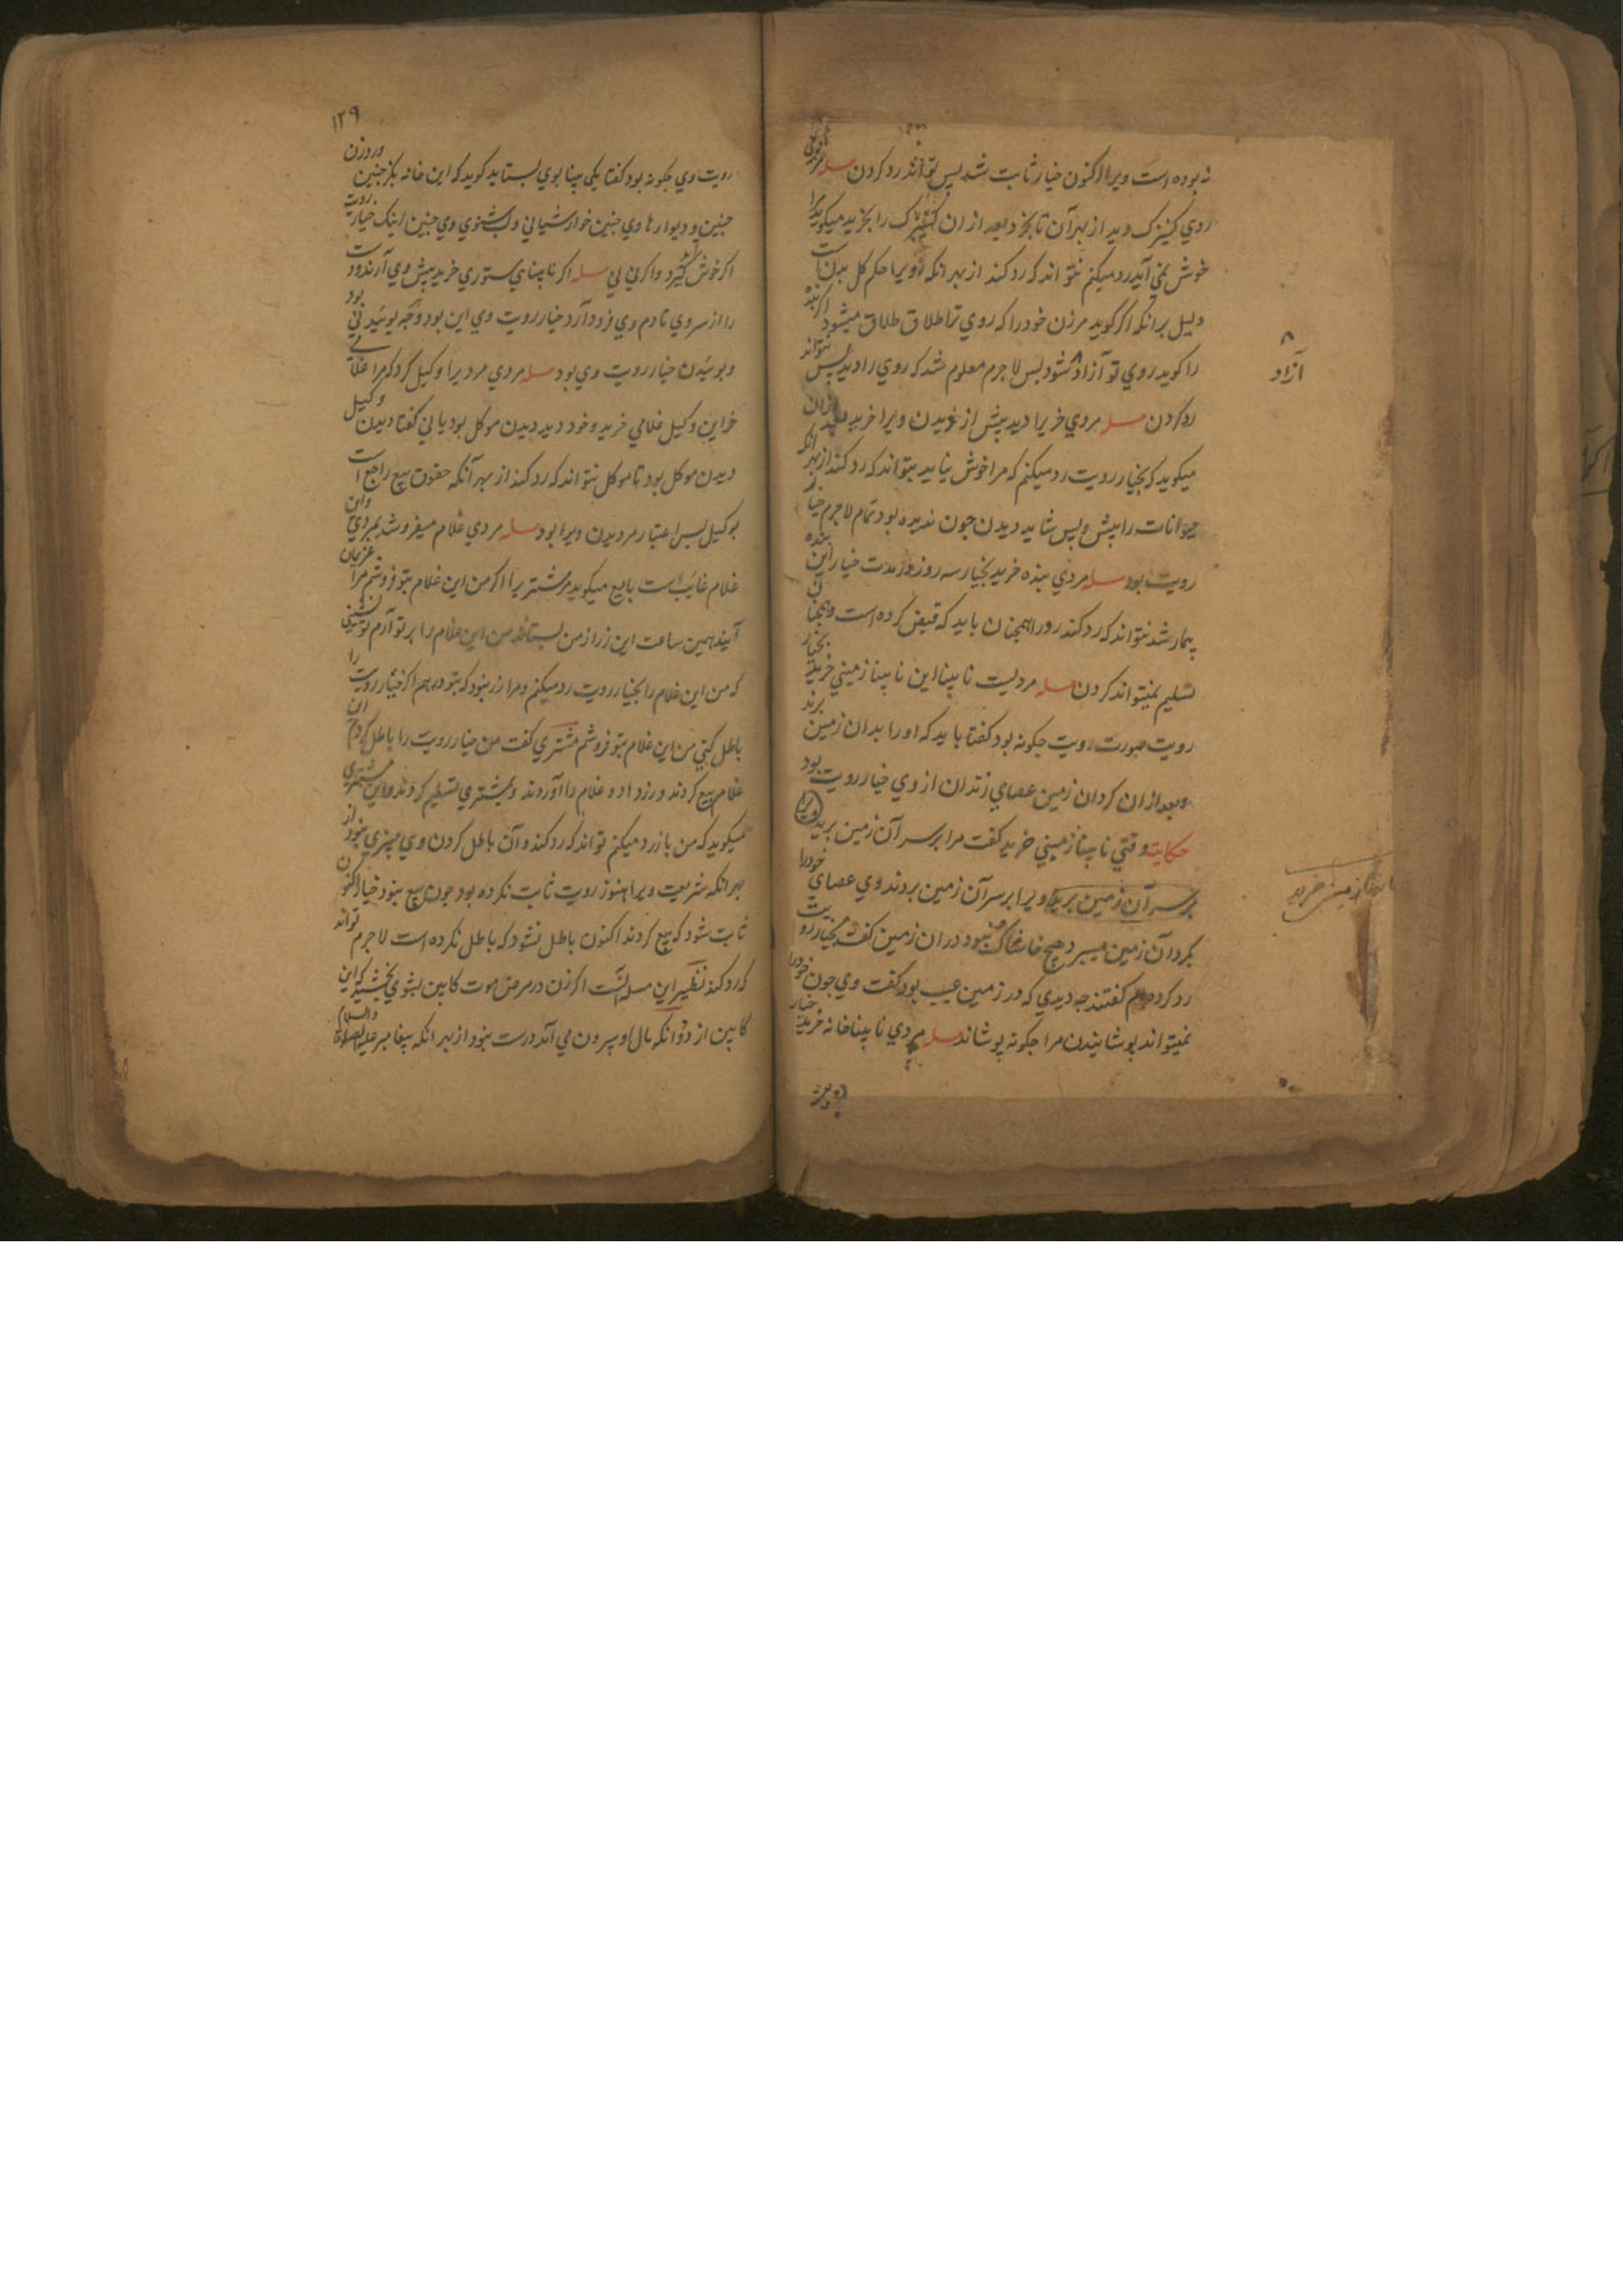 نه بوده است ویرا اکنون خیار ثابت شد پس تواند رد کردن مسله
روی کنیزک دید از بهر آن تا بخرد بعد ازان کنیزک را بخرید میکوید
خوش نمی آید رد میکنم نتواند که رد کند از بهر انکه رو یرا حکم کل بدن است
دلیل برانکه اکر کوید مر زن خود را که روی ترا طلاق طلاق میشود اکر بنده
را کوید روی تو آزاد شود پس لا جرم معلوم شد که روی را دید پس نتواند
رد کردن مسله مردی خر یرا دید پیش از خریدن ویرا خرید بعد ازان
میکوید که بخیار رویت رد میکنم که مرا خوش نیاید بتواند که رد کند از بهر انکه
حیوانات را پیش و پس شاید دیدن چون ندیده بود تمام لا جرم خیار
رویت بود مسله مردی بنده خرید بخیار سه روز در مدت خیار این بنده
بیمار شد نتواند که رد کند زورا همچنان باید که قبض کرده است و همچنانی
تسلیم نمیتواند کردن مسله مردیست نا بینا این نا بینا زمینی خرید بخیار
رویت صورت رویت جکونه بود کفتا باید که او را بدان زمین برند
و بعد ازان کردان زمین عصای زند ان از وی خیار رویت بود
حکایت وقتی نا بینا زمینی خرید کفت مرا بر سر آن زمین برید ویرا
بر سر آن زمین برید ویرا بر سر آن زمین بردند وی عصای خود را
بکرد آن زمین میبرد هیچ خار نبود دران زمین کفت بخیار رویت
رد کردم کفتند چه دیدی که در زمین عیب بود کفت وی چون خود را
نمیتواند پوشانیدن مرا جکونه پوشاند مسله مردی نا بینا خانه خرید بخیار
رویت
آزاد
نا بینا زمینی خرید
١٢٩
رویت وی جکونه بود کفتا یکی بینا بوی بستاید کوید که این خانه بکز چنین در روزن
چنین و دیوارها وی چنین خوار شیانی و لب شنوی وی چنین اینک خیار رویت
اکر خوش آید کیرد و اکر نی نی مسله اکر نا بینای ستوری خرید پیش وی آرند و دست
را از سر وی تا دم وی فرود آرد خیار رویت وی این بود و کجه بوئیدنی بود
و بوئیدن خیار رویت وی بود مسله مردی مرد یرا وکیل کرد که مرا غلامی
خر این وکیل غلامی خرید و خود دید دیدن موکل بود یا نی کفتا دیدن وکیل
دیدن موکل بود تا موکل نتواند که رد کند از بهر آنکه حقوق بیع راجع است
بوکیل پس اعتبار مر دیدن ویرا بود مسله مردی غلام میفروشد بمردی وان
غلام غایب است بایع میکوید مر مشتریرا اکر من این غلام بتو فروشم مرا غریمان
آیند همین ساعت این زر از من بستانند من این غلام را بر تو آرم تو
که من این غلام را بخیار رویت رد میکنم و مرا زر نبود که بتو دهم اکر خیار رویت را
باطل کنی من این غلام بتو فروشم مشتری کفت من خیار رویت را باطل کردم این
غلام بیع کردند و زر داد و غلام را آوردند و بمشتری تسلیم کردند و این مشتری
میکوید که من باز رد میکنم تواند که رد کند و آن باطل کردن وی چیزی نبود از
بهر انکه شریعت ویرا هنوز رویت ثابت نکرده بود چون بیع نبود خیار اکنون
ثابت شود که بیع کردند اکنون باطل نشود که باطل نکرده است لا جرم تواند
که رد کند نظیر این مسله آنست اکر زن در مرض موت کابین بشوی بخشید که این
کابین از دو دانکه مال او بیرون می آند درست نبود از بهر انکه پیغامبر علیه الصلوة والسلام